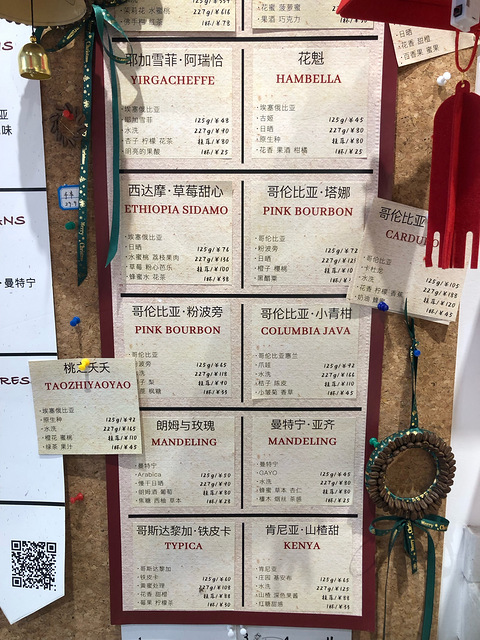 茉莉花 水蜜桃
227g/¥616
1杯/¥78
花蜜 菠萝蜜
果酒 巧克力
日晒
花香 甜橙
百香果 蜜果
耶加雪菲·阿瑞恰
YIRGACHEFFE
埃塞俄比亚
耶加雪菲 125g/¥48
水洗 227g/¥90
杏子 柠檬 花茶 挂落/¥80
明亮的果酸 1杯/¥25
花魁
HAMBELLA
埃塞俄比亚
古姬 125g/¥45
日晒 227g/¥80
原生种 挂落/¥80
花香 果酒 柑橘 1杯/¥25
西达摩·草莓甜心
ETHIOPIA SIDAMO
埃塞俄比亚
日晒 125g/¥76
水蜜桃 荔枝果肉 227g/¥136
草莓 粉心芭乐 挂落/¥100
蜂蜜水 花茶 1杯/¥38
哥伦比亚·塔娜
PINK BOURBON
哥伦比亚
粉波旁 125g/¥72
日晒
橙子 樱桃
黑醋栗
哥伦比亚
CARDU
哥伦比亚
卡杜龙 125g/¥105
水洗 227g/¥188
花香 柠檬 香蕉 挂落/¥120
奶油 1杯/¥45
哥伦比亚·粉波旁
PINK BOURBON
哥伦比亚
粉波旁 125g/¥65
水洗 227g/¥118
挂落/¥90
枫糖 1杯/¥35
哥伦比亚·小青柑
COLUMBIA JAVA
哥伦比亚惠兰
爪哇 125g/¥92
水洗 227g/¥166
桔子 陈皮 挂落/¥110
小皱菊 香草 1杯/¥45
桃之夭夭
TAOZHIYAOYAO
埃塞俄比亚
原生种 125g/¥92
水洗 227g/¥165
橙花 蜜桃 挂落/¥110
绿茶 果汁 1杯/¥45
朗姆与玫瑰
MANDELING
曼特宁
Arabica 125g/¥50
慢干日晒 227g/¥90
朗姆酒 葡萄 挂落/¥80
焦糖 西柚 草本 1杯/¥28
曼特宁·亚齐
MANDELING
曼特宁
GAYO 125g/¥45
水洗 227g/¥80
蜂蜜 草本 杏仁 挂落/¥80
檀木 烟丝 茶感 1杯/¥25
哥斯达黎加·铁皮卡
TYPICA
哥斯达黎加
铁皮卡 125g/¥60
黄蜜处理 227g/¥108
花香 甜橙 挂落/¥88
莓果 柠檬茶 1杯/¥30
肯尼亚·山楂甜
KENYA
肯尼亚
庄园 基安布 125g/¥65
水洗 227g/¥125
山楂 深色果酱 挂落/¥88
红糖甜感 1杯/¥35
曼特宁